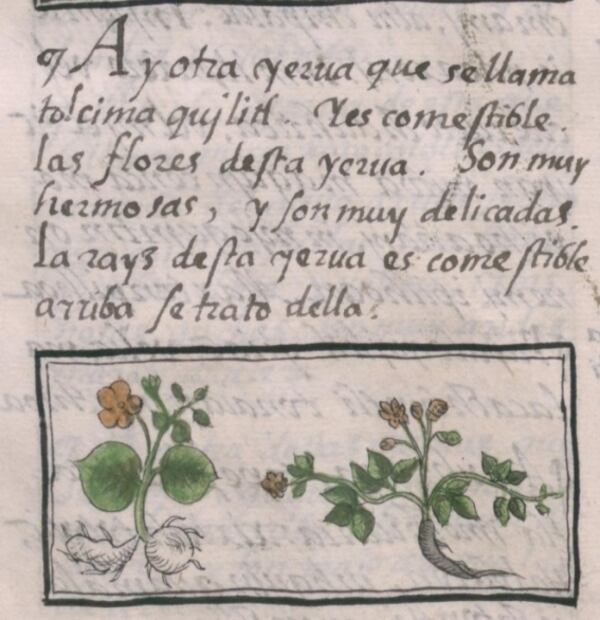 ¶ Ay otra yerua que se llama
tolcima quilitl. Yes comestible.
las flores desta yerua. Son muy
hermosas, y son muy delicadas.
La rayz desta yerua es comestible
arriba se trato della.